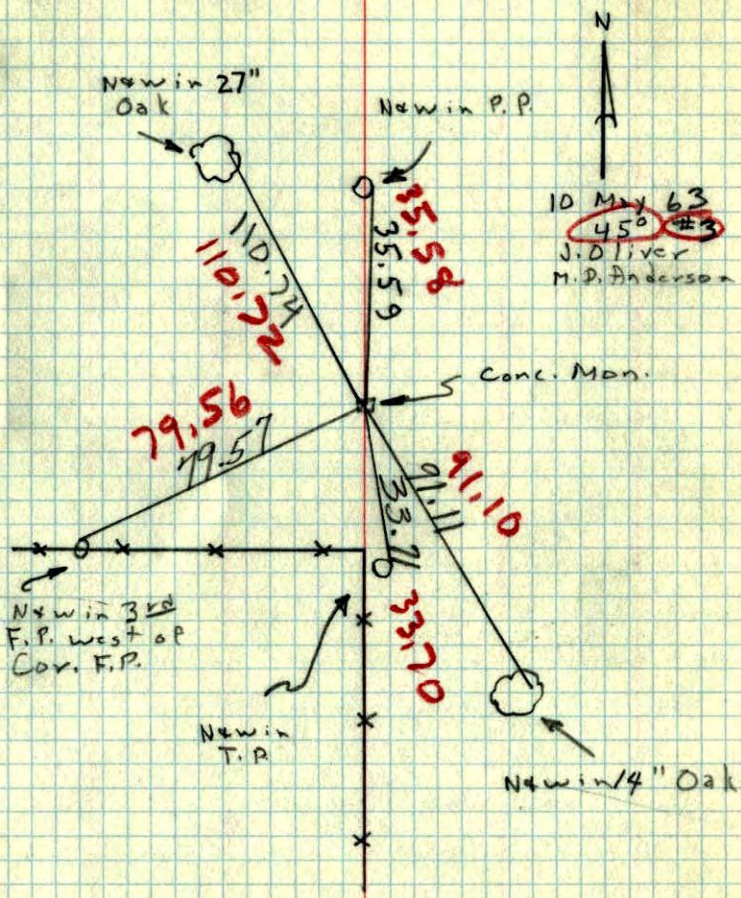 N
N&W in 27"
Oak
N&W in P.P.
10 May 63
45° #3
J. Oliver
M.D. Anderson
110.74
110.72
35.59
35.58
Conc. Mon.
79.56
79.57
91.11
91.10
33.70
N&W in 3rd
F.P. west of
Cor. F.P.
N&W in
T.P.
N&W in 14" Oak